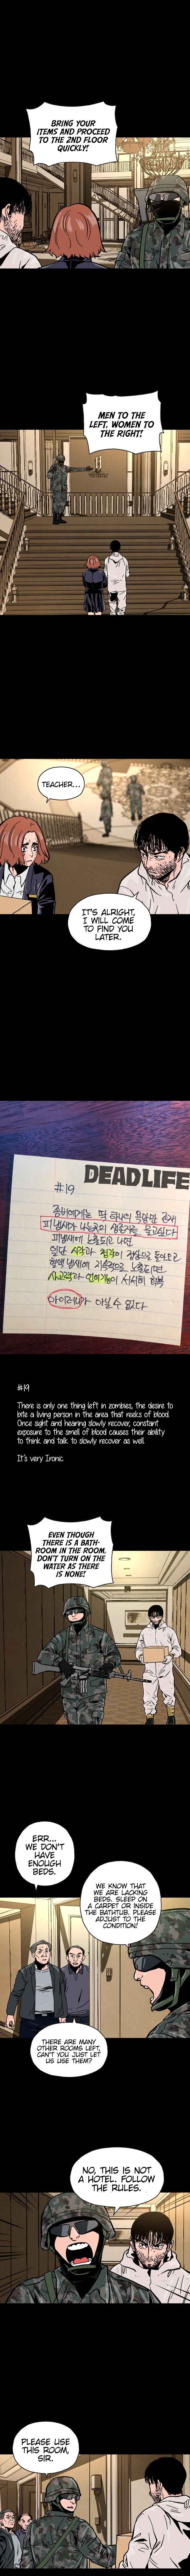 BRING YOUR
ITEMS AND PROCEED
TO THE 2ND FLOOR
QUICKLY!
MEN TO THE
LEFT, WOMEN TO
THE RIGHT!
TEACHER...
IT'S ALRIGHT,
I WILL COME
TO FIND YOU
LATER.
DEADLIFE
#19
좀비에게는 딱 하나의
피냄새가 나는곳의 생존자를 물고싶다
피냄새에 노출되고 나면
일단 시각과 청각이
아이러니가 아닐 수 없다
#19
There is only one thing left in zombies, the desire to
bite a living person in the area that reeks of blood.
Once sight and hearing slowly recover, constant
exposure to the smell of blood causes their ability
to think and talk to slowly recover as well.
It's very Ironic
EVEN THOUGH
THERE IS A BATH-
ROOM IN THE ROOM,
DON'T TURN ON THE
WATER AS THERE
IS NONE!
ERR...
WE DON'T
HAVE
ENOUGH
BEDS.
WE KNOW THAT
WE ARE LACKING
BEDS. SLEEP ON
A CARPET OR INSIDE
THE BATHTUB. PLEASE
ADJUST TO THE
CONDITION!
THERE ARE MANY
OTHER ROOMS LEFT,
CAN'T YOU JUST LET
US USE THEM?
NO, THIS IS NOT
A HOTEL. FOLLOW
THE RULES.
PLEASE USE
THIS ROOM,
SIR.